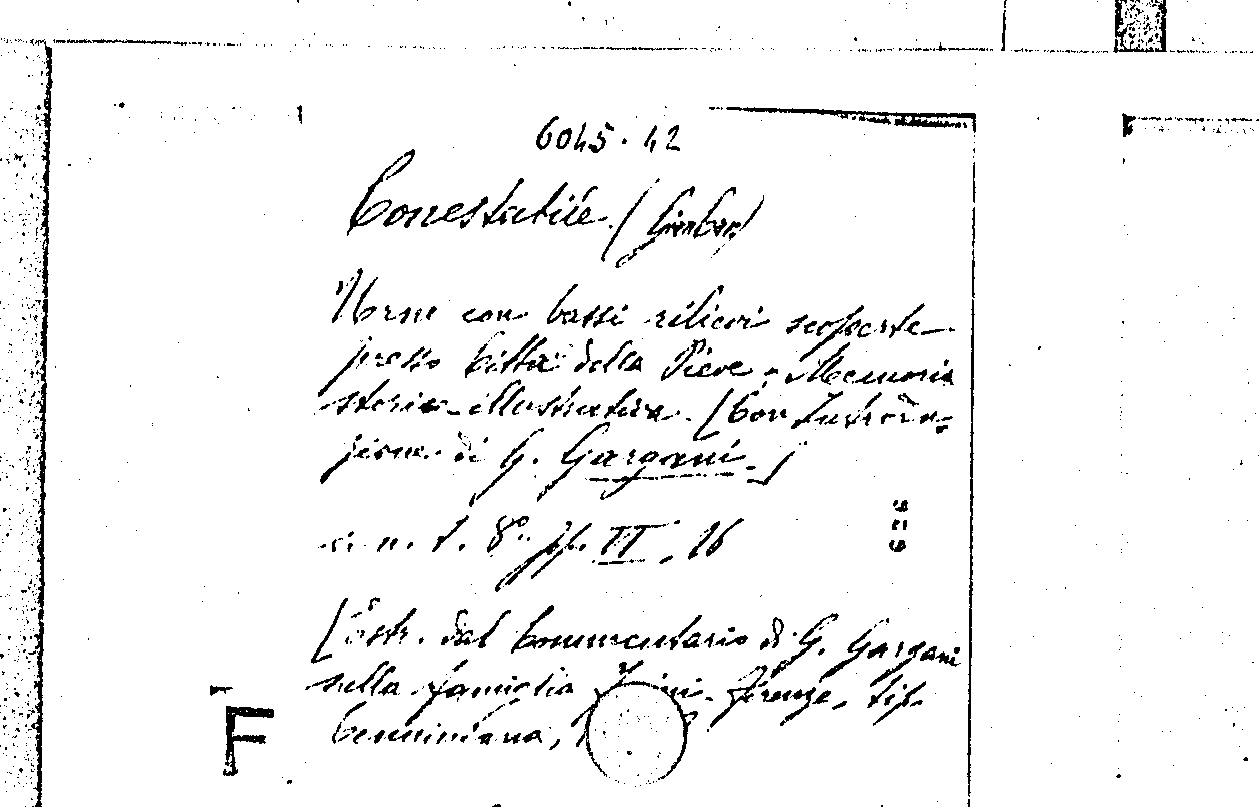 6045.42
Conestabile (Giancarlo)
Urne con bassi rilievi scoperte
presso Città della Pieve. Memoria
storico-illustrativa. [Con Introdu-
zione di G. Gargani.]
s. n. t. 8° pp. II, 16
[Estr. dal Commentario di G. Gargani
sulla famiglia Firenze, tip.
Cenniniana,
F